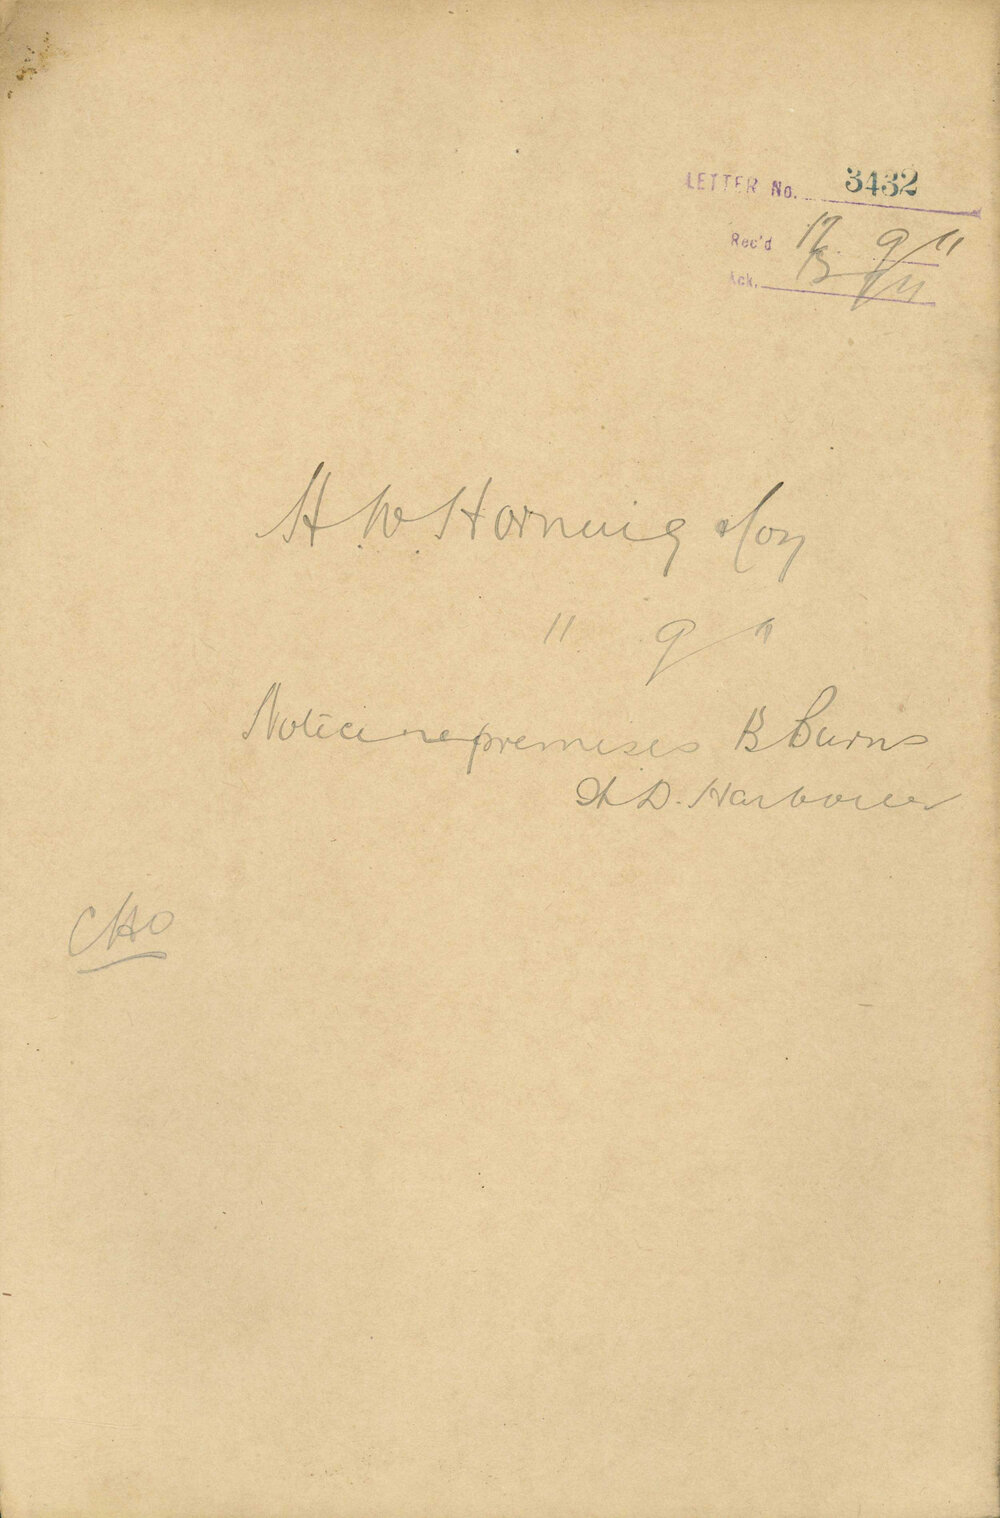 LETTER No. 3432
Rec'd 12 9 11
Ack. 13 9/11
H. W. Horning & Coy
11 9 11
Notice re premises B Burns
& D. Harbour
CHO